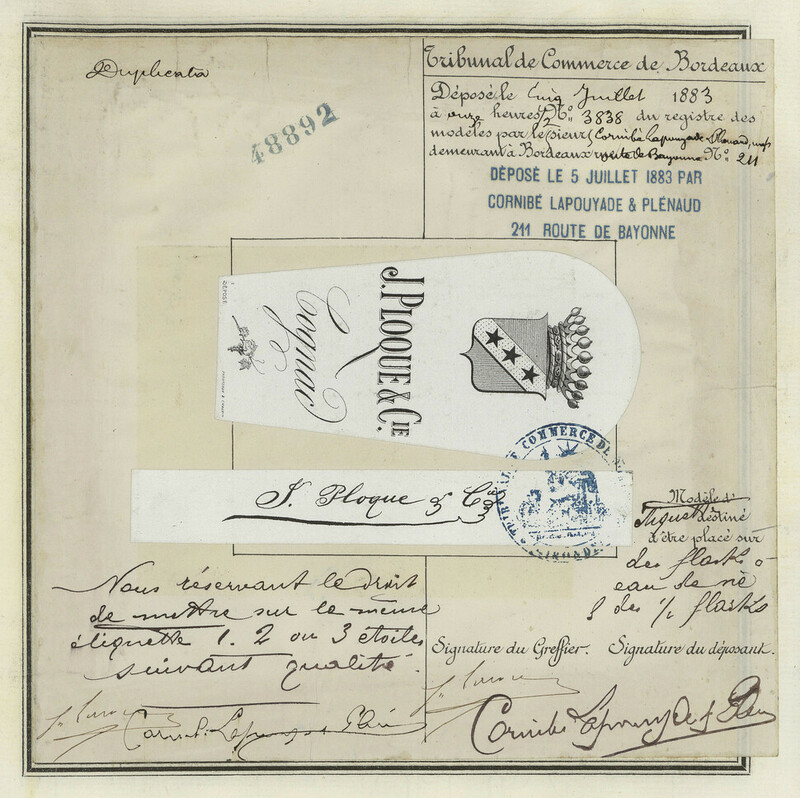 Duplicata
48892
Tribunal de Commerce de Bordeaux
Déposé le cinq Juillet 1883
à onze heures, No. 3838 du registre des
modèles par le sieurs Cornibé Lapouyade & Plénaud, nég
demeurant à Bordeaux route de Bayonne No. 211
DÉPOSÉ LE 5 JUILLET 1883 PAR
CORNIBÉ LAPOUYADE & PLÉNAUD
211 ROUTE DE BAYONNE
J. PLOQUE & CIE
Cognac
DÉPOSÉ
J. Ploque & Cie
COMMERCE DE
GIRONDE
Modèle d'
étiquette destiné
à être placé sur
des flasks à
eau de vie
& des 1/2 flasks
Nous réservant le droit
de mettre sur la même
étiquette 1. 2 ou 3 étoiles
suivant qualité.
Signature du Greffier. Signature du déposant.
Cornibé Lapouyade & Plén
Cornibé Lapouyade & Plén